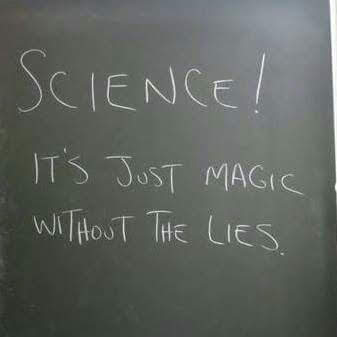 SCIENCE!
IT'S JUST MAGIC
WITHOUT THE LIES.